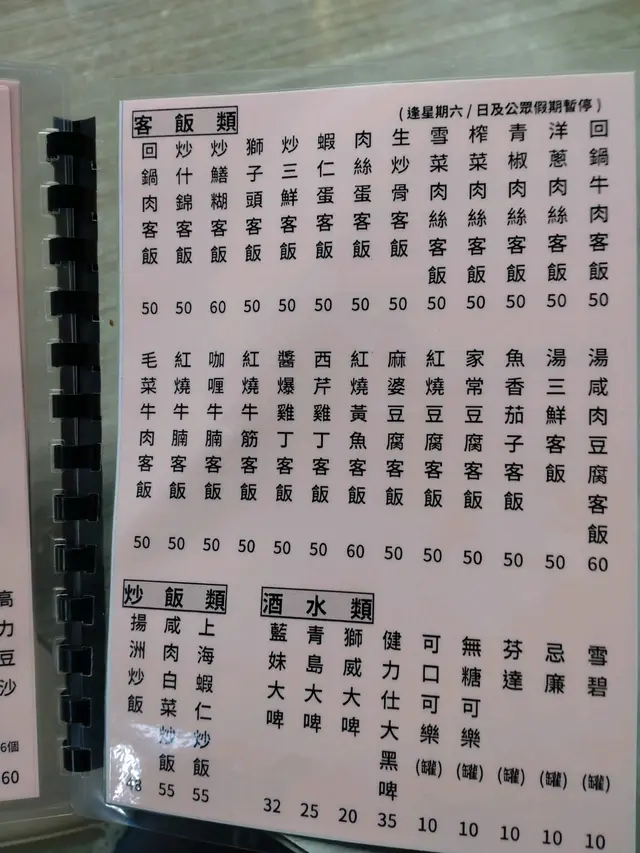 高力豆沙
6個
60
客飯類
(逢星期六/日及公眾假期暫停)
回鍋肉客飯 50
炒什錦客飯 50
炒鱔糊客飯 60
獅子頭客飯 50
炒三鮮客飯 50
蝦仁蛋客飯 50
肉絲蛋客飯 50
生炒骨客飯 50
雪菜肉絲客飯 50
榨菜肉絲客飯 50
青椒肉絲客飯 50
洋蔥肉絲客飯 50
回鍋牛肉客飯 50
毛菜牛肉客飯 50
紅燒牛腩客飯 50
咖喱牛腩客飯 50
紅燒牛筋客飯 50
醬爆雞丁客飯 50
西芹雞丁客飯 50
紅燒黃魚客飯 60
麻婆豆腐客飯 50
紅燒豆腐客飯 50
家常豆腐客飯 50
魚香茄子客飯 50
湯三鮮客飯 50
湯咸肉豆腐客飯 60
炒飯類
揚洲炒飯 48
咸肉白菜炒飯 55
上海蝦仁炒飯 55
酒水類
藍妹大啤 32
青島大啤 25
獅威大啤 20
健力仕大黑啤 35
可口可樂(罐) 10
無糖可樂(罐) 10
芬達(罐) 10
忌廉(罐) 10
雪碧(罐) 10